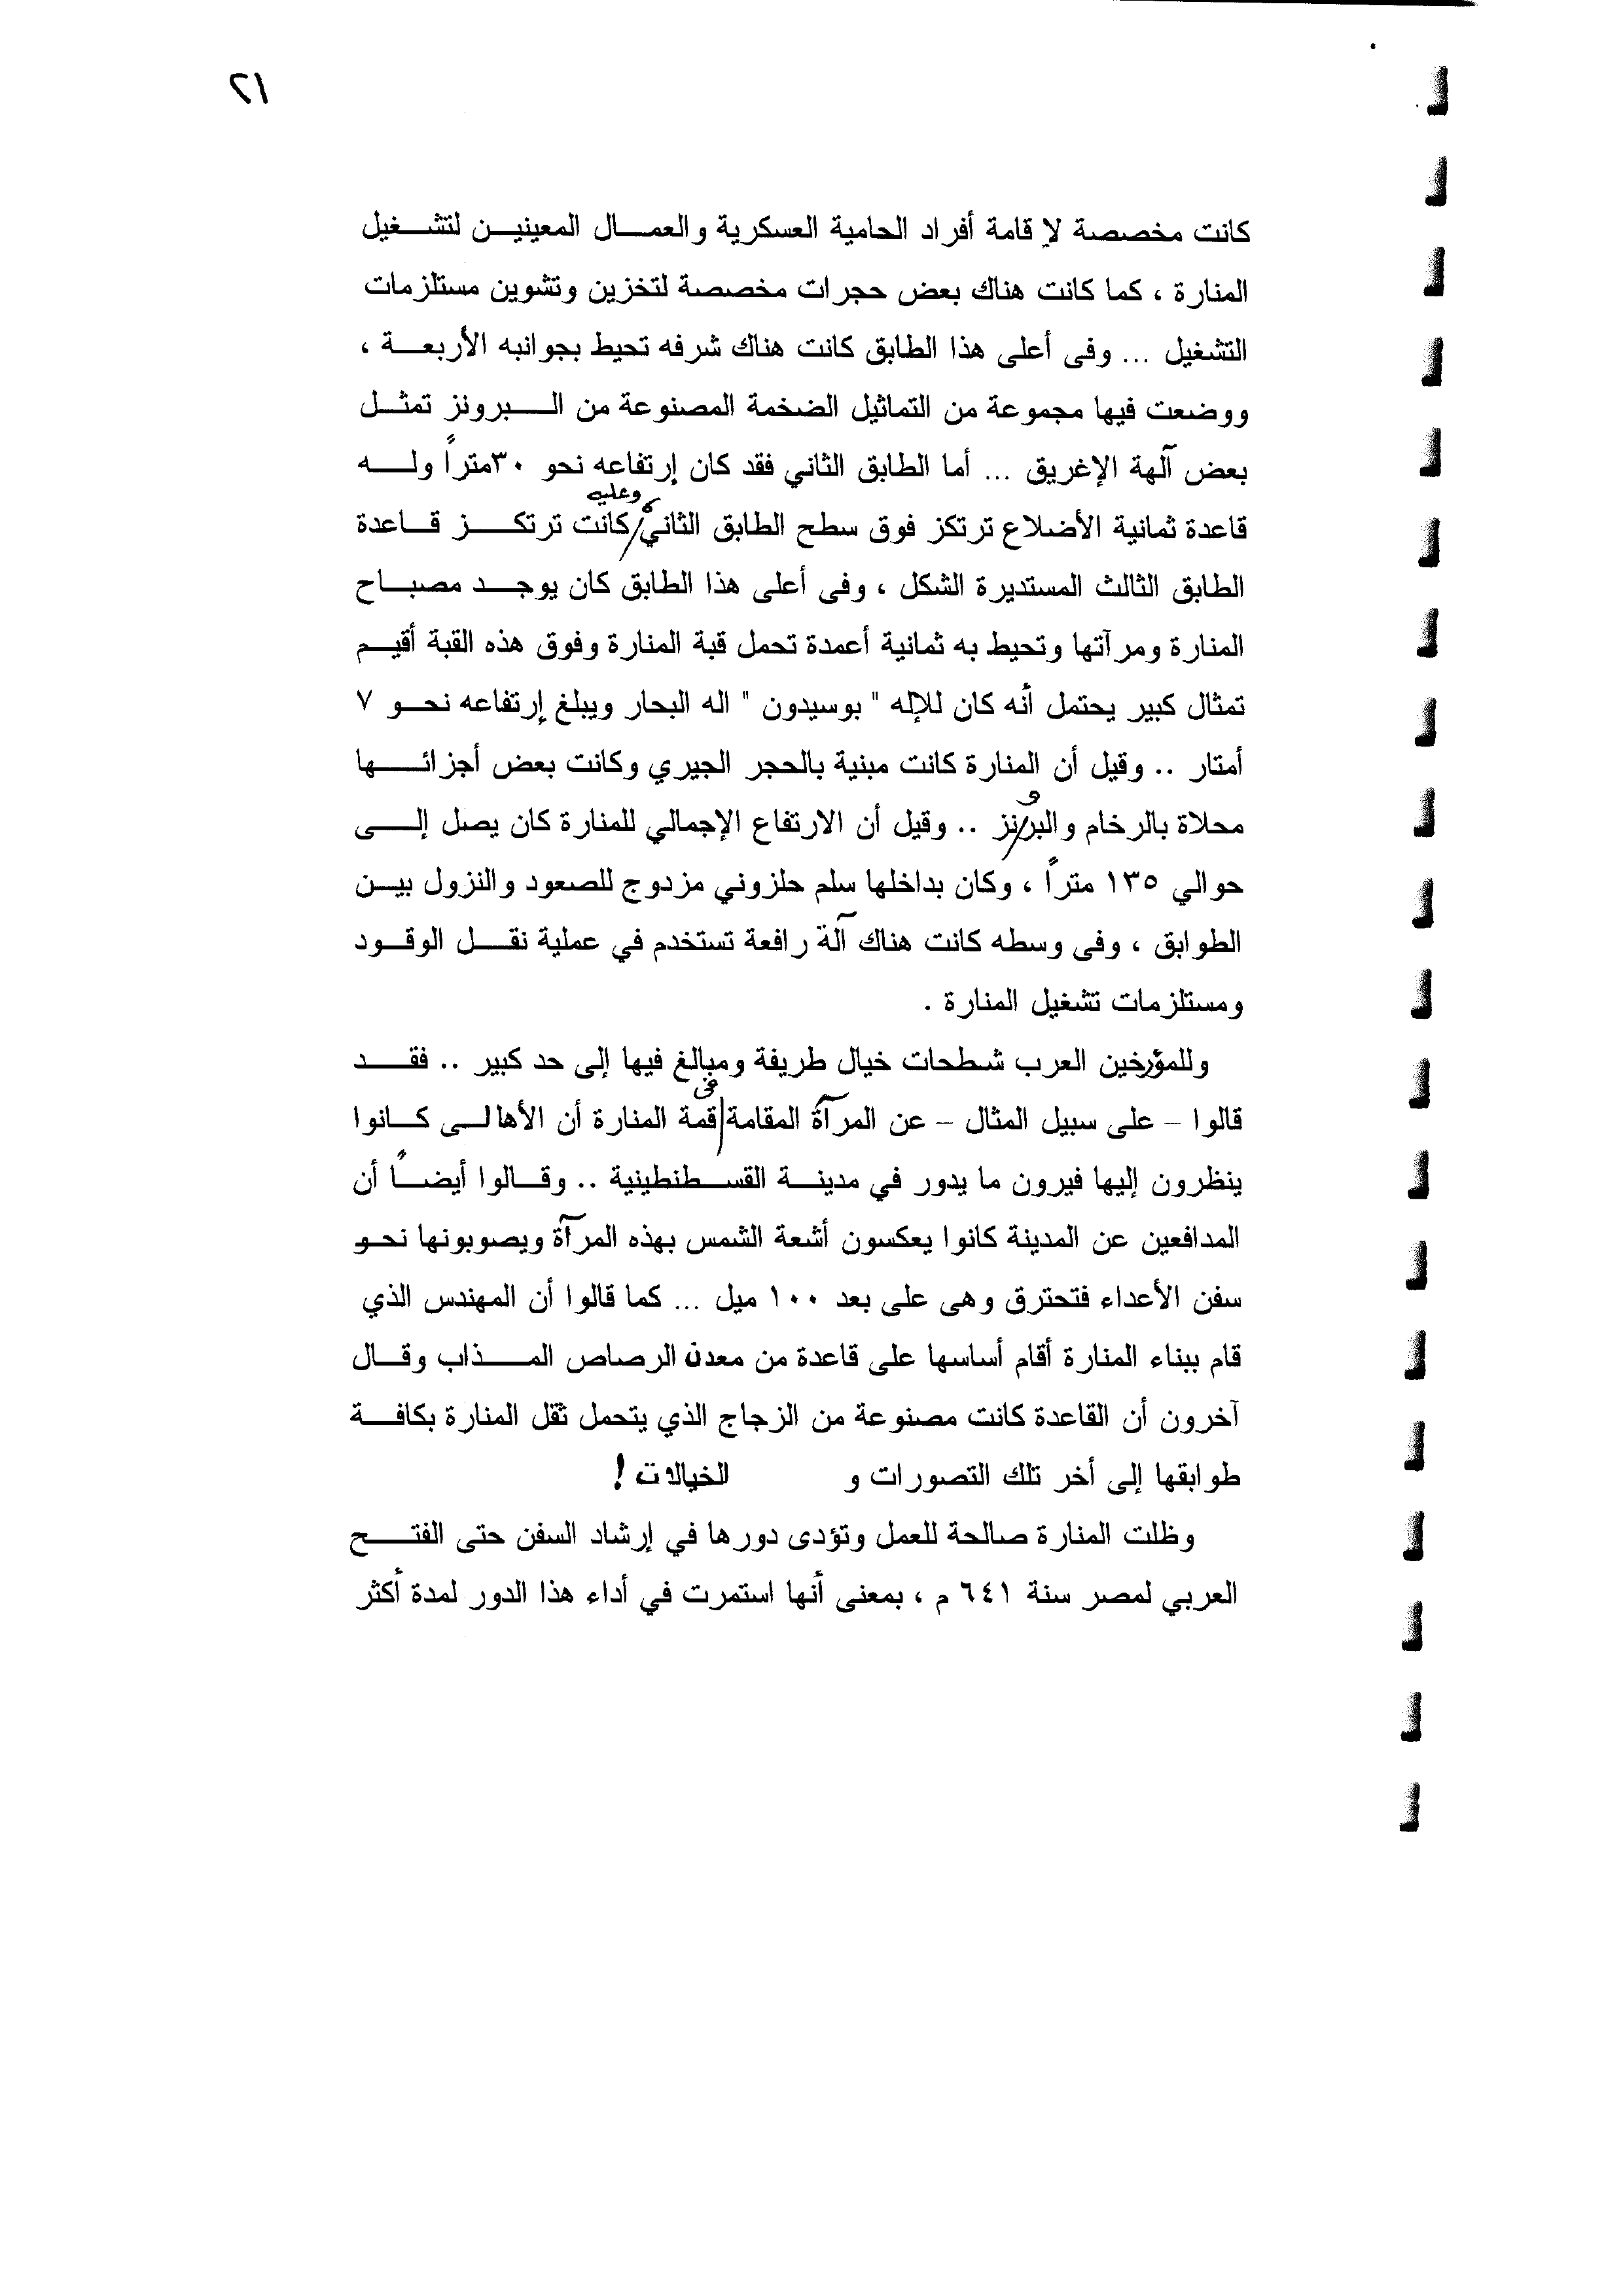 ٢١
كانت مخصصة لإقامة أفراد الحامية العسكرية والعمال المعينين لتشغيل
المنارة ، كما كانت هناك بعض حجرات مخصصة لتخزين وتشوين مستلزمات
التشغيل ... وفى أعلى هذا الطابق كانت هناك شرفه تحيط بجوانبه الأربعة ،
ووضعت فيها مجموعة من التماثيل الضخمة المصنوعة من البرونز تمثل
بعض آلهة الإغريق ... أما الطابق الثاني فقد كان إرتفاعه نحو ٣٠متراً وله
قاعدة ثمانية الأضلاع ترتكز فوق سطح الطابق الثاني، وعليه كانت ترتكز قاعدة
الطابق الثالث المستديرة الشكل ، وفى أعلى هذا الطابق كان يوجد مصباح
المنارة ومرآتها وتحيط به ثمانية أعمدة تحمل قبة المنارة وفوق هذه القبة أقيم
تمثال كبير يحتمل أنه كان للإله " بوسيدون " اله البحار ويبلغ إرتفاعه نحو ٧
أمتار .. وقيل أن المنارة كانت مبنية بالحجر الجيري وكانت بعض أجزائها
محلاة بالرخام والبرونز .. وقيل أن الارتفاع الإجمالي للمنارة كان يصل إلى
حوالي ١٣٥ متراً ، وكان بداخلها سلم حلزوني مزدوج للصعود والنزول بين
الطوابق ، وفى وسطه كانت هناك آلة رافعة تستخدم في عملية نقل الوقود
ومستلزمات تشغيل المنارة .
وللمؤرخين العرب شطحات خيال طريفة ومبالغ فيها إلى حد كبير .. فقد
قالوا – على سبيل المثال – عن المرآة المقامة فى قمة المنارة أن الأهالى كانوا
ينظرون إليها فيرون ما يدور في مدينة القسطنطينية .. وقالوا أيضاً أن
المدافعين عن المدينة كانوا يعكسون أشعة الشمس بهذه المرآة ويصوبونها نحو
سفن الأعداء فتحترق وهى على بعد ١٠٠ ميل ... كما قالوا أن المهندس الذي
قام ببناء المنارة أقام أساسها على قاعدة من معدن الرصاص المذاب وقال
آخرون أن القاعدة كانت مصنوعة من الزجاج الذي يتحمل ثقل المنارة بكافة
طوابقها إلى أخر تلك التصورات و الخيالات !
وظلت المنارة صالحة للعمل وتؤدى دورها في إرشاد السفن حتى الفتح
العربي لمصر سنة ٦٤١ م ، بمعنى أنها استمرت في أداء هذا الدور لمدة أكثر